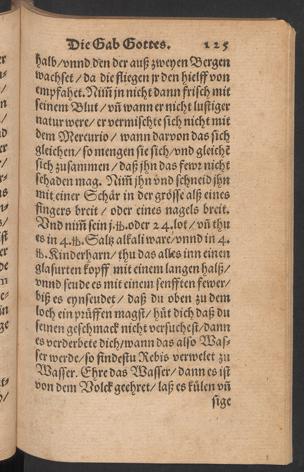 Die Gab Gottes. 125
halb/ vnnd den der auß zweyen Bergen
wachset/ da die fliegen jr den hielff von
empfahet. Nim̃ jn nicht dann frisch mit
seinem Blut/ vñ wann er nicht lustiger
natur were/ er vermischte sich nicht mit
dem Mercurio/ wann darvon das sich
gleichen/ so mengen sie sich/ vnd gleichẽ
sich zusammen/ daß jhn das fewr nicht
schaden mag. Nim̃ jhn vnd schneid jhn
mit einer Schär in der grösse alß eines
fingers breit/ oder eines nagels breit.
Vnd nim̃ sein j. ℔. oder 24. lot/ vñ thu
es in 4. ℔. Saltz alkali ware/ vnnd in 4.
℔. Kinderharn/ thu das alles inn einen
glasurten kopff mit einem langen halß/
vnnd seude es mit einem senfften fewer/
biß es eynseudet/ daß du oben zu dem
loch ein prüffen magst/ hüt dich daß du
seinen geschmack nicht versuchest/ dann
es verderbete dich/ wann das also Was-
ser werde/ so findestu Rebis verwelet zu
Wasser. Ehre das Wasser/ dann es ist
von dem Volck geehret/ laß es külen vñ
sige